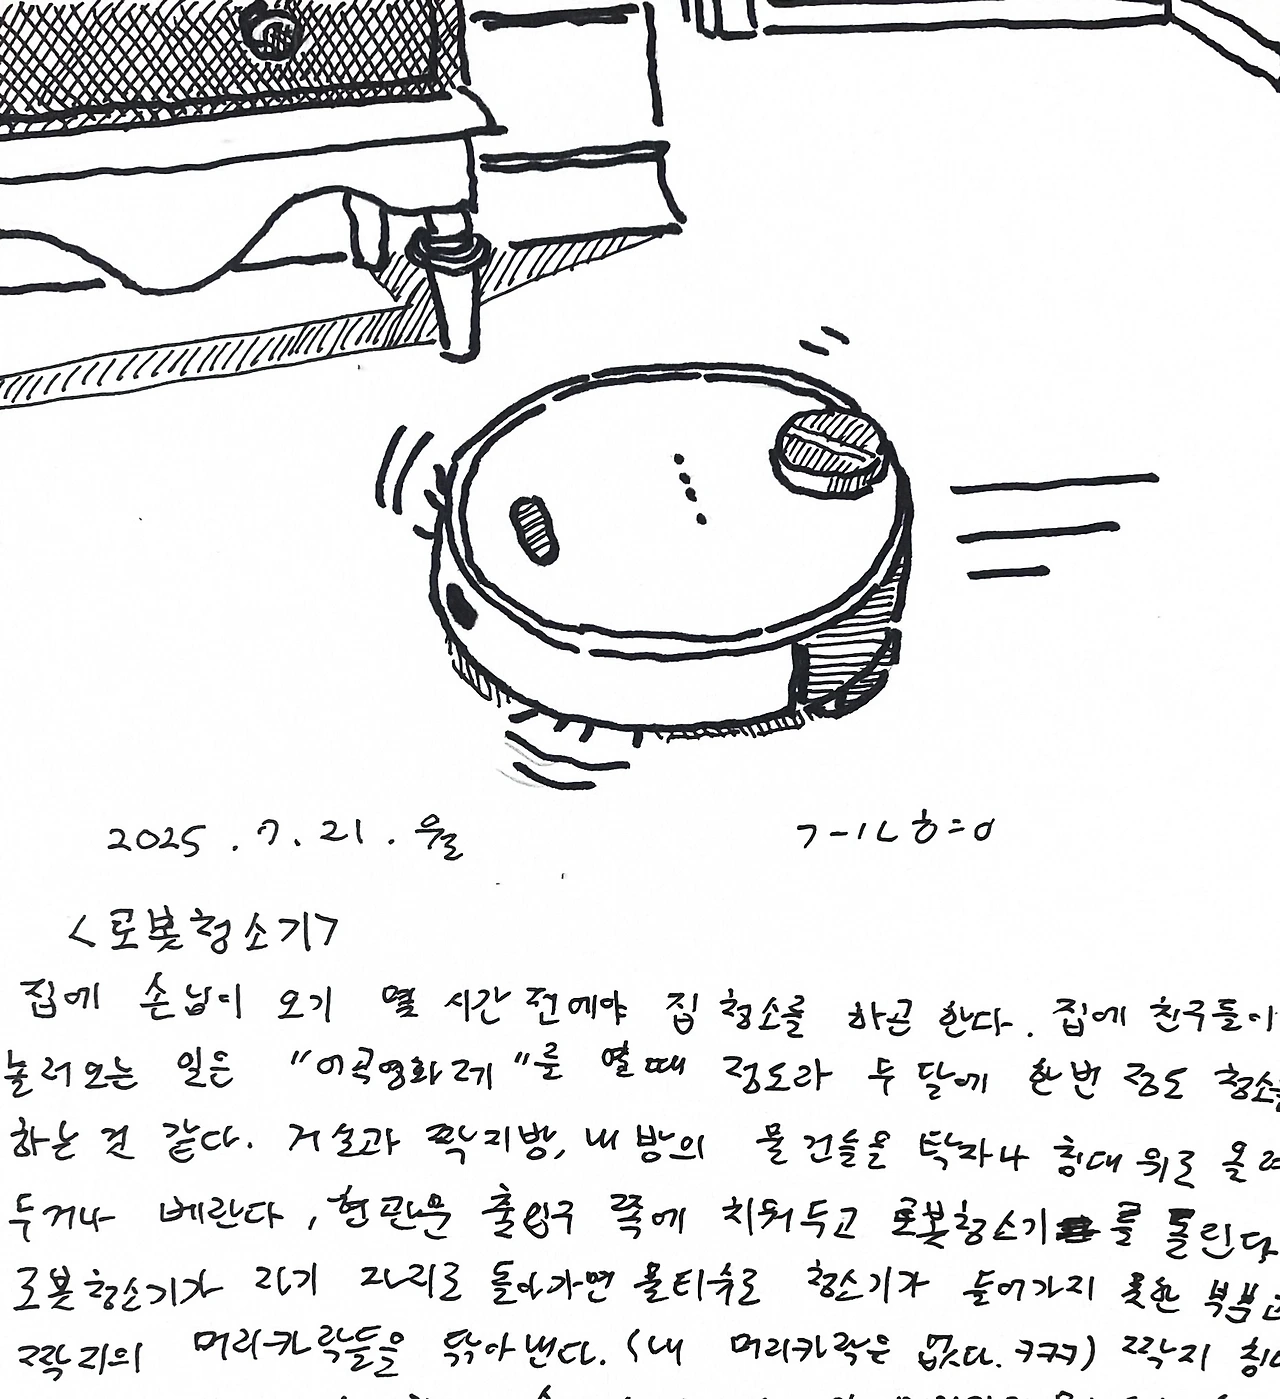 2025. 7. 21. 월
ㄱㅡㅣㄴㅎㅡㅇ
<로봇청소기>
집에 손님이 오기 몇 시간 전에야 집 청소를 하곤 한다. 집에 친구들이
놀러오는 일은 "이곡영화제"를 열 때 정도라 두 달에 한번 정도 청소를
하는 것 같다. 거실과 짝지방, 내 방의 물건들을 탁자나 침대 위로 올려
두거나 베란다, 현관문 출입구 쪽에 치워두고 로봇청소기를 돌린다.
로봇청소기가 자기 자리로 돌아가면 물티슈로 청소기가 들어가지 못한 부분과
짝지의 머리카락들을 닦아낸다. (내 머리카락은 없다. ㅋㅋㅋ) 짝지 침대